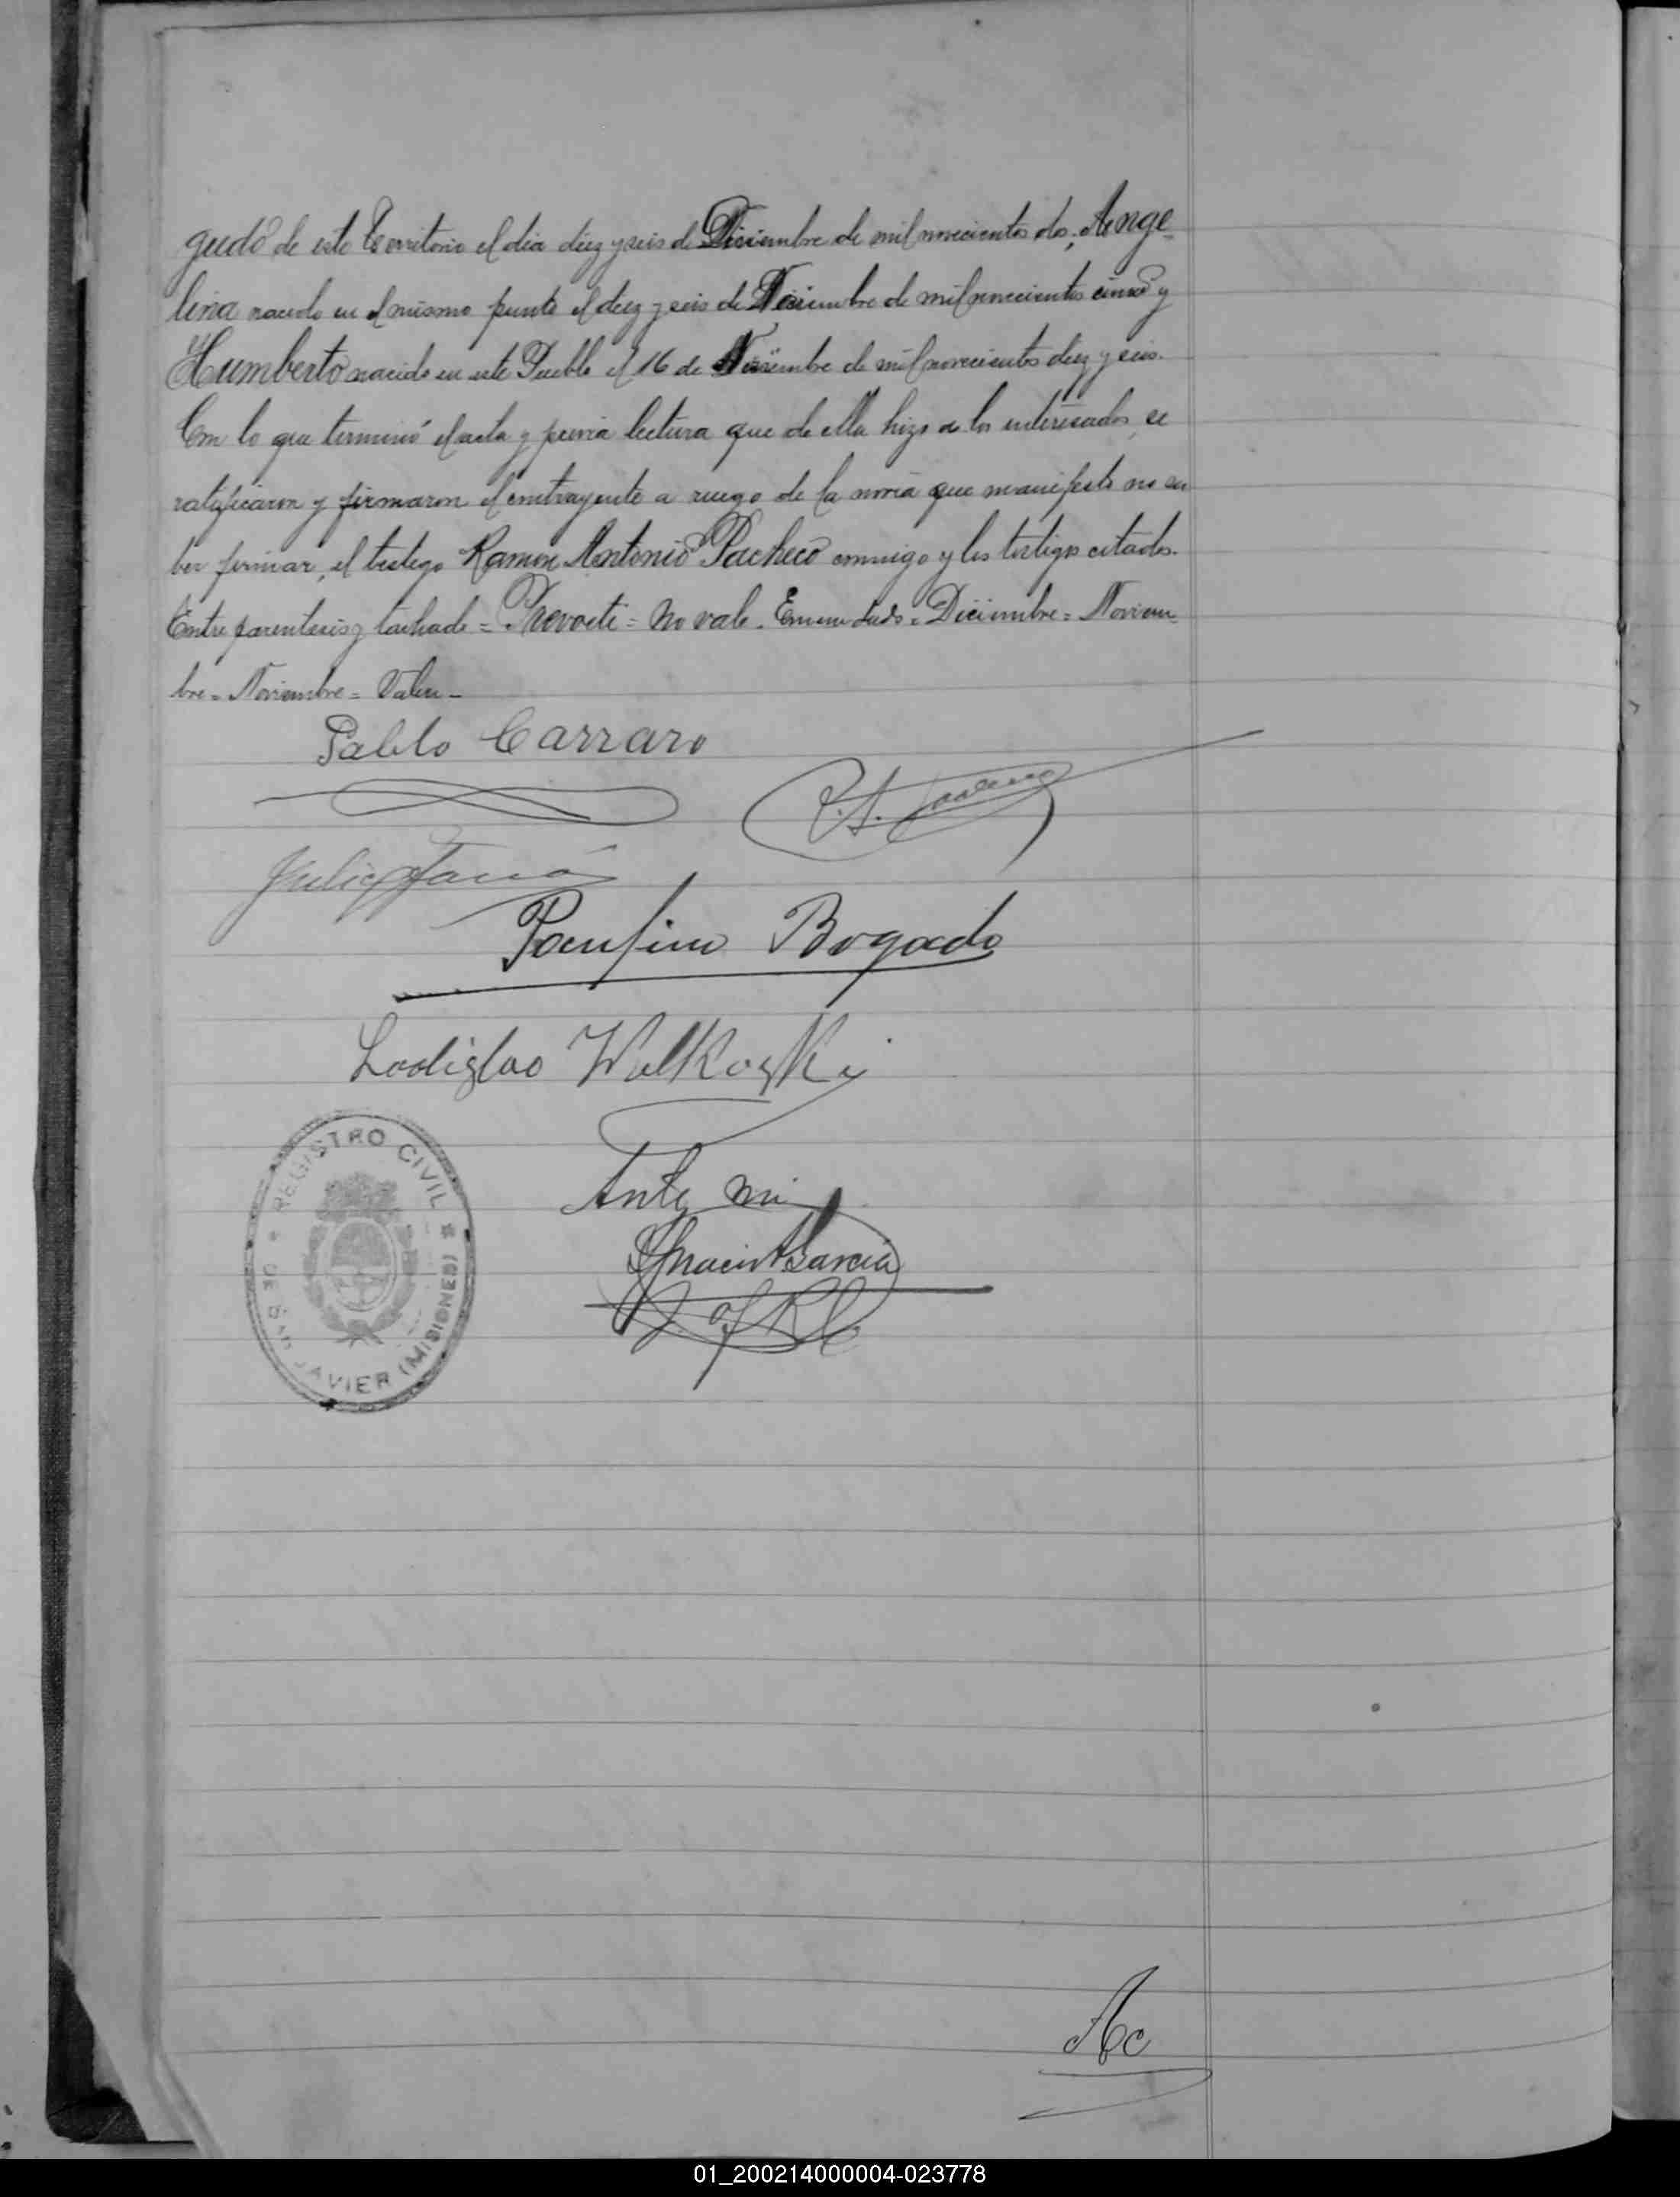 guedo de este Territorio el dia diez y seis de Diciembre de mil novecientos dos; Ange-
lina nacida en el mismo punto el diez y seis de Noviembre de mil novecientos cinco y
Humberto nacido en este Pueblo el 16 de Noviembre de mil novecientos diez y seis.
Con lo que terminó el acta y previa lectura que de ella hizo a los interesados, se
ratificaron y firmaron el contrayente a ruego de la novia que manifesto no sa
ber firmar, el testigo Ramon Antonio Pacheco conmigo y los testigos citados.
Entre parentesis y tachado = = No vale. Enmendado = Diciembre = Noviem-
bre = Noviembre = Valen -
Pablo Carraro
R. A.
Julio
Bogado
Ladislao
Ante mi
Ignacio Garcia
REGISTRO CIVIL
DE SAN JAVIER (MISIONES)
01_200214000004-023778